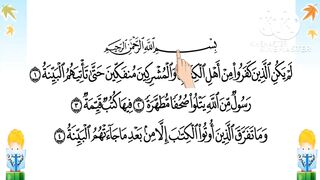 بِسْمِ اللَّهِ الرَّحْمَٰنِ الرَّحِيمِ
لَمْ يَكُنِ الَّذِينَ كَفَرُوا مِنْ أَهْلِ الْكِتَابِ وَالْمُشْرِكِينَ مُنفَكِّينَ حَتَّىٰ تَأْتِيَهُمُ الْبَيِّنَةُ ١
رَسُولٌ مِّنَ اللَّهِ يَتْلُوا صُحُفًا مُّطَهَّرَةً ٢ فِيهَا كُتُبٌ قَيِّمَةٌ ٣
وَمَا تَفَرَّقَ الَّذِينَ أُوتُوا الْكِتَابَ إِلَّا مِنۢ بَعْدِ مَا جَاءَتْهُمُ الْبَيِّنَةُ ٤